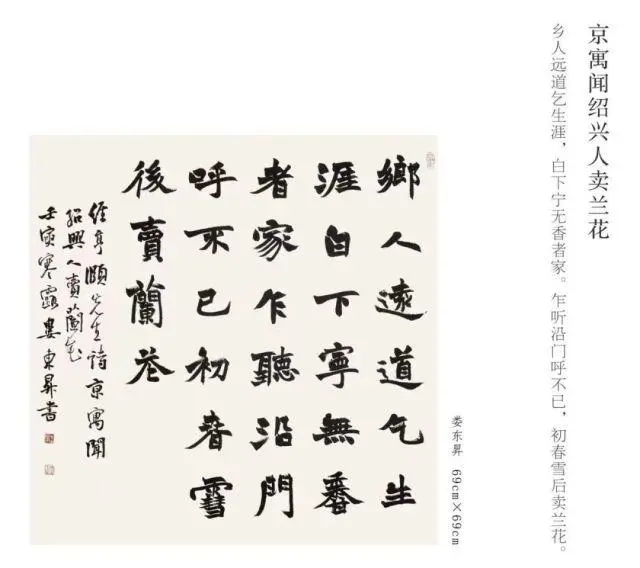 京寓闻绍兴人卖兰花
乡人远道乞生涯，白下宁无香者家。乍听沿门呼不已，初春雪后卖兰花。
娄东昇 69cm×69cm
鄉人遠道乞生
涯白下寧無香
者家乍聽沿門
呼不已初春雪
後賣蘭花
經亨頤先生詩京寓聞
紹興人賣蘭花
壬寅寒露婁東昇書